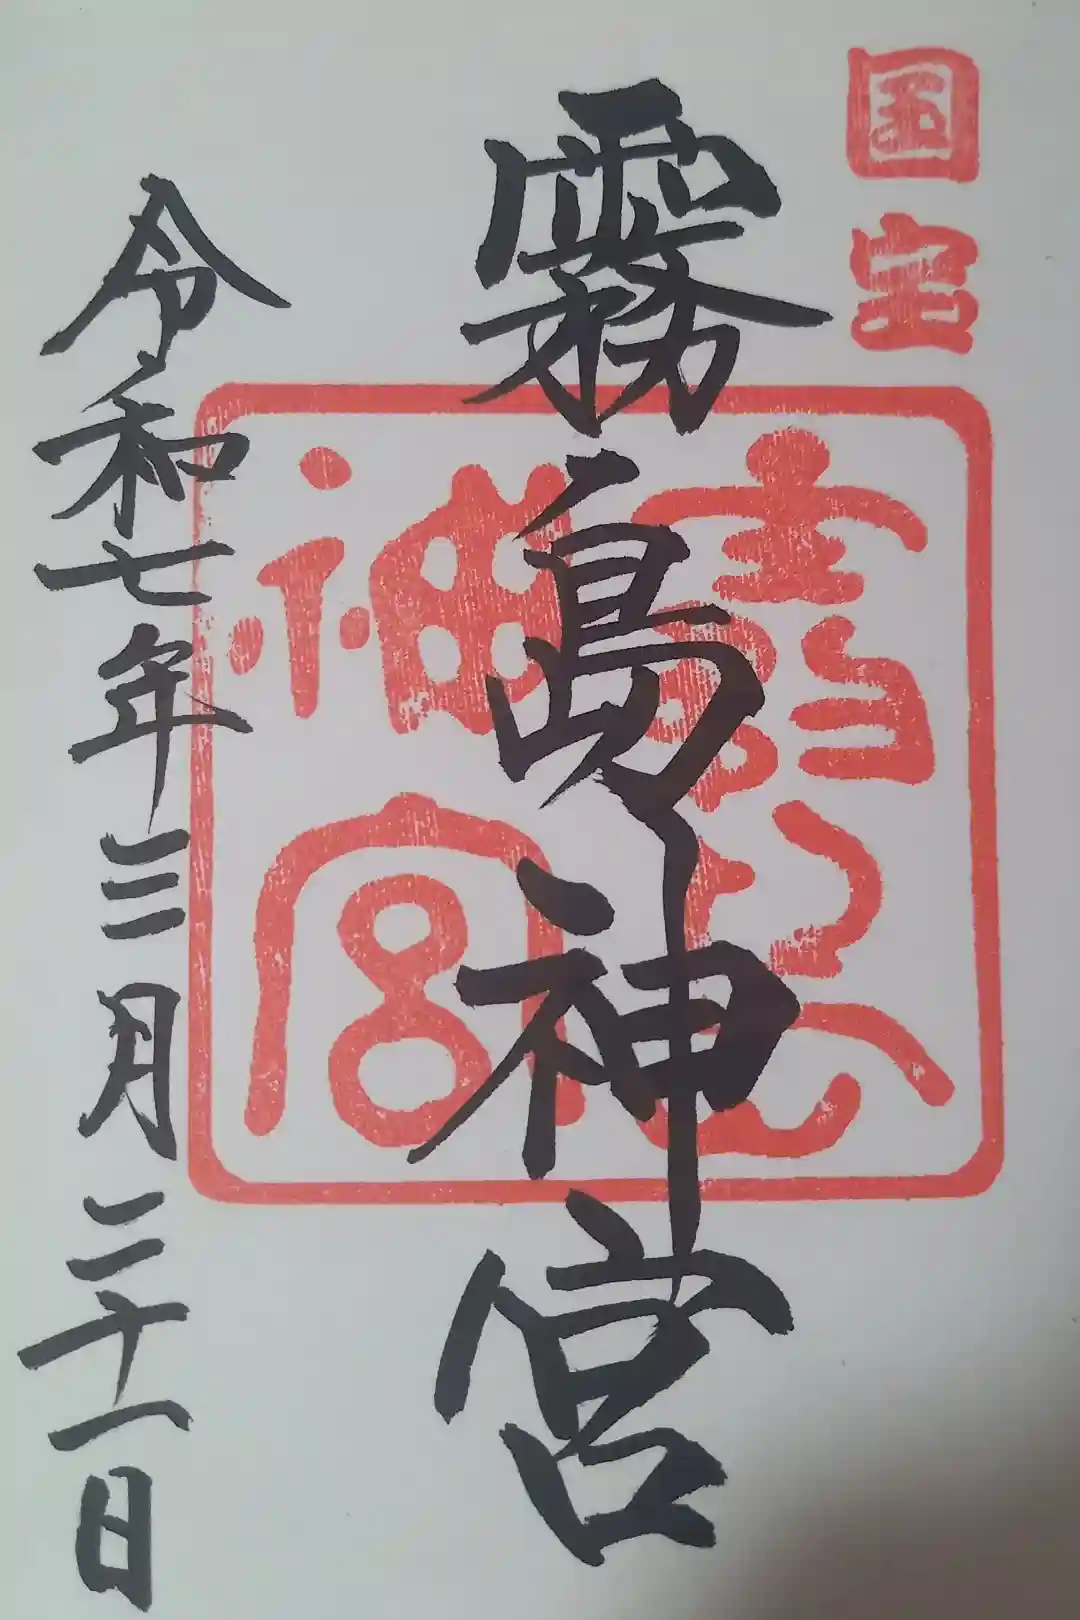 国宝
霧島神宮
令和七年三月二十一日